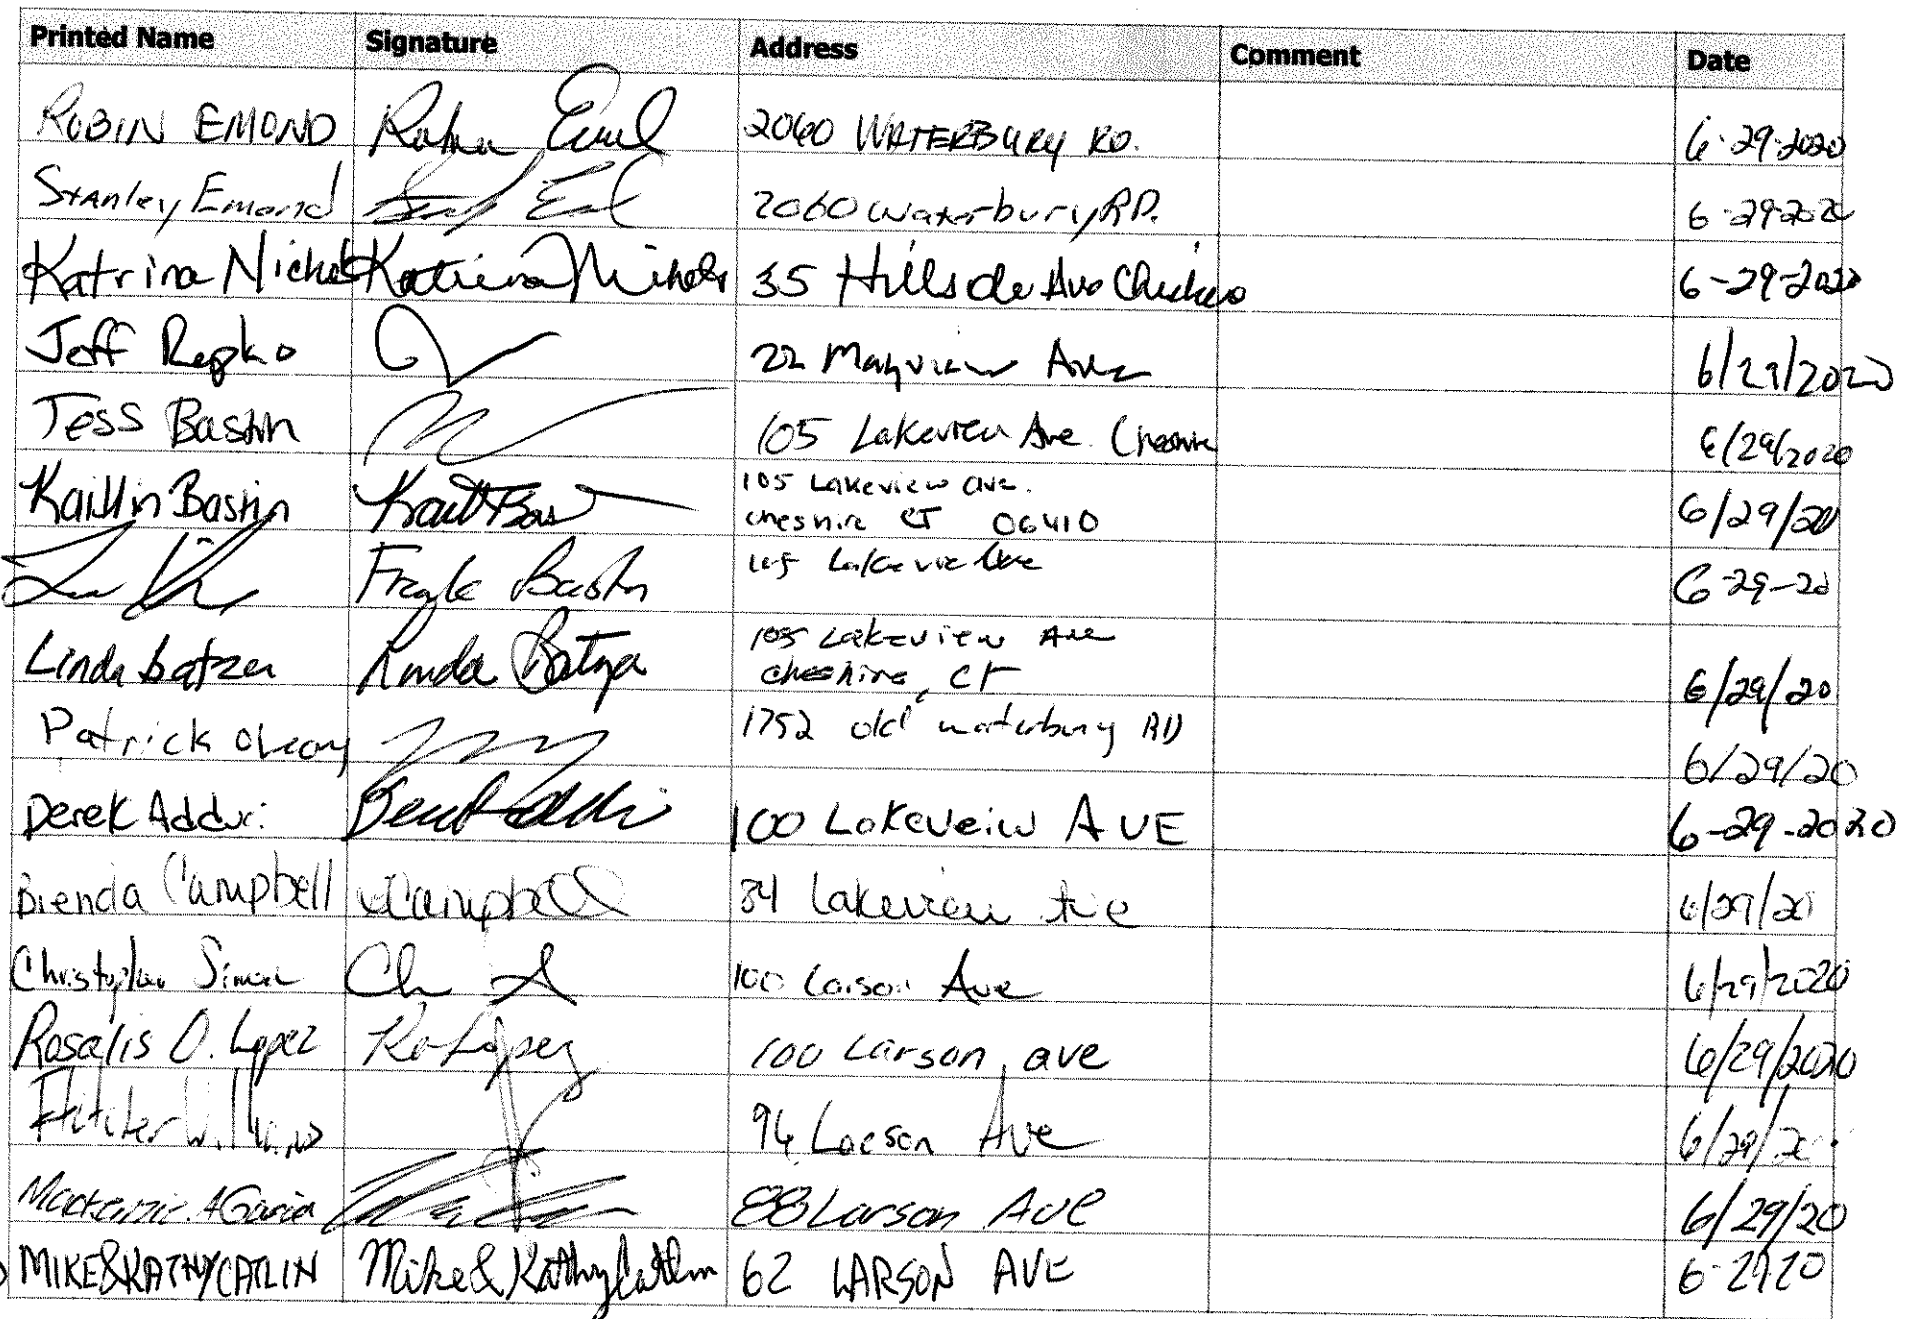 Printed Name Signature Address Comment Date
ROBIN EMOND 2060 WATERBURY RD. 6-29-2020
Stanley Emond 2060 Waterbury RD. 6-29-2020
Katrina Nichols Katrina Nichols 35 Hillside Ave 6-29-2020
Jeff Repko 22 Mayview Ave 6/29/2020
Jess Bastin 105 Lakeview Ave. Cheshire 6/29/2020
Kaitlin Bastin 105 Lakeview ave.
Cheshire CT 06410 6/29/20
Frank Bastin 105 Lakeview Ave 6-29-20
Linda batzer Linda Batzer 105 Lakeview Ave
Cheshire, CT 6/29/20
Patrick Oleary 1752 old waterbury RD 6/29/20
Derek Adduci 100 Lakeveiw AVE 6-29-2020
Brenda Campbell Campbell 84 Lakeview Ave 6/29/20
Christopher Simon 100 Larson Ave 6/29/2020
Rosalis O. Lopez Ro Lopez 100 Larson ave 6/29/2020
94 Larson Ave 6/29/20
Mackenzie A Garcia 88 Larson Ave 6/29/20
MIKE & KATHY CATLIN Mike & Kathy Catlin 62 LARSON AVE 6-29 20